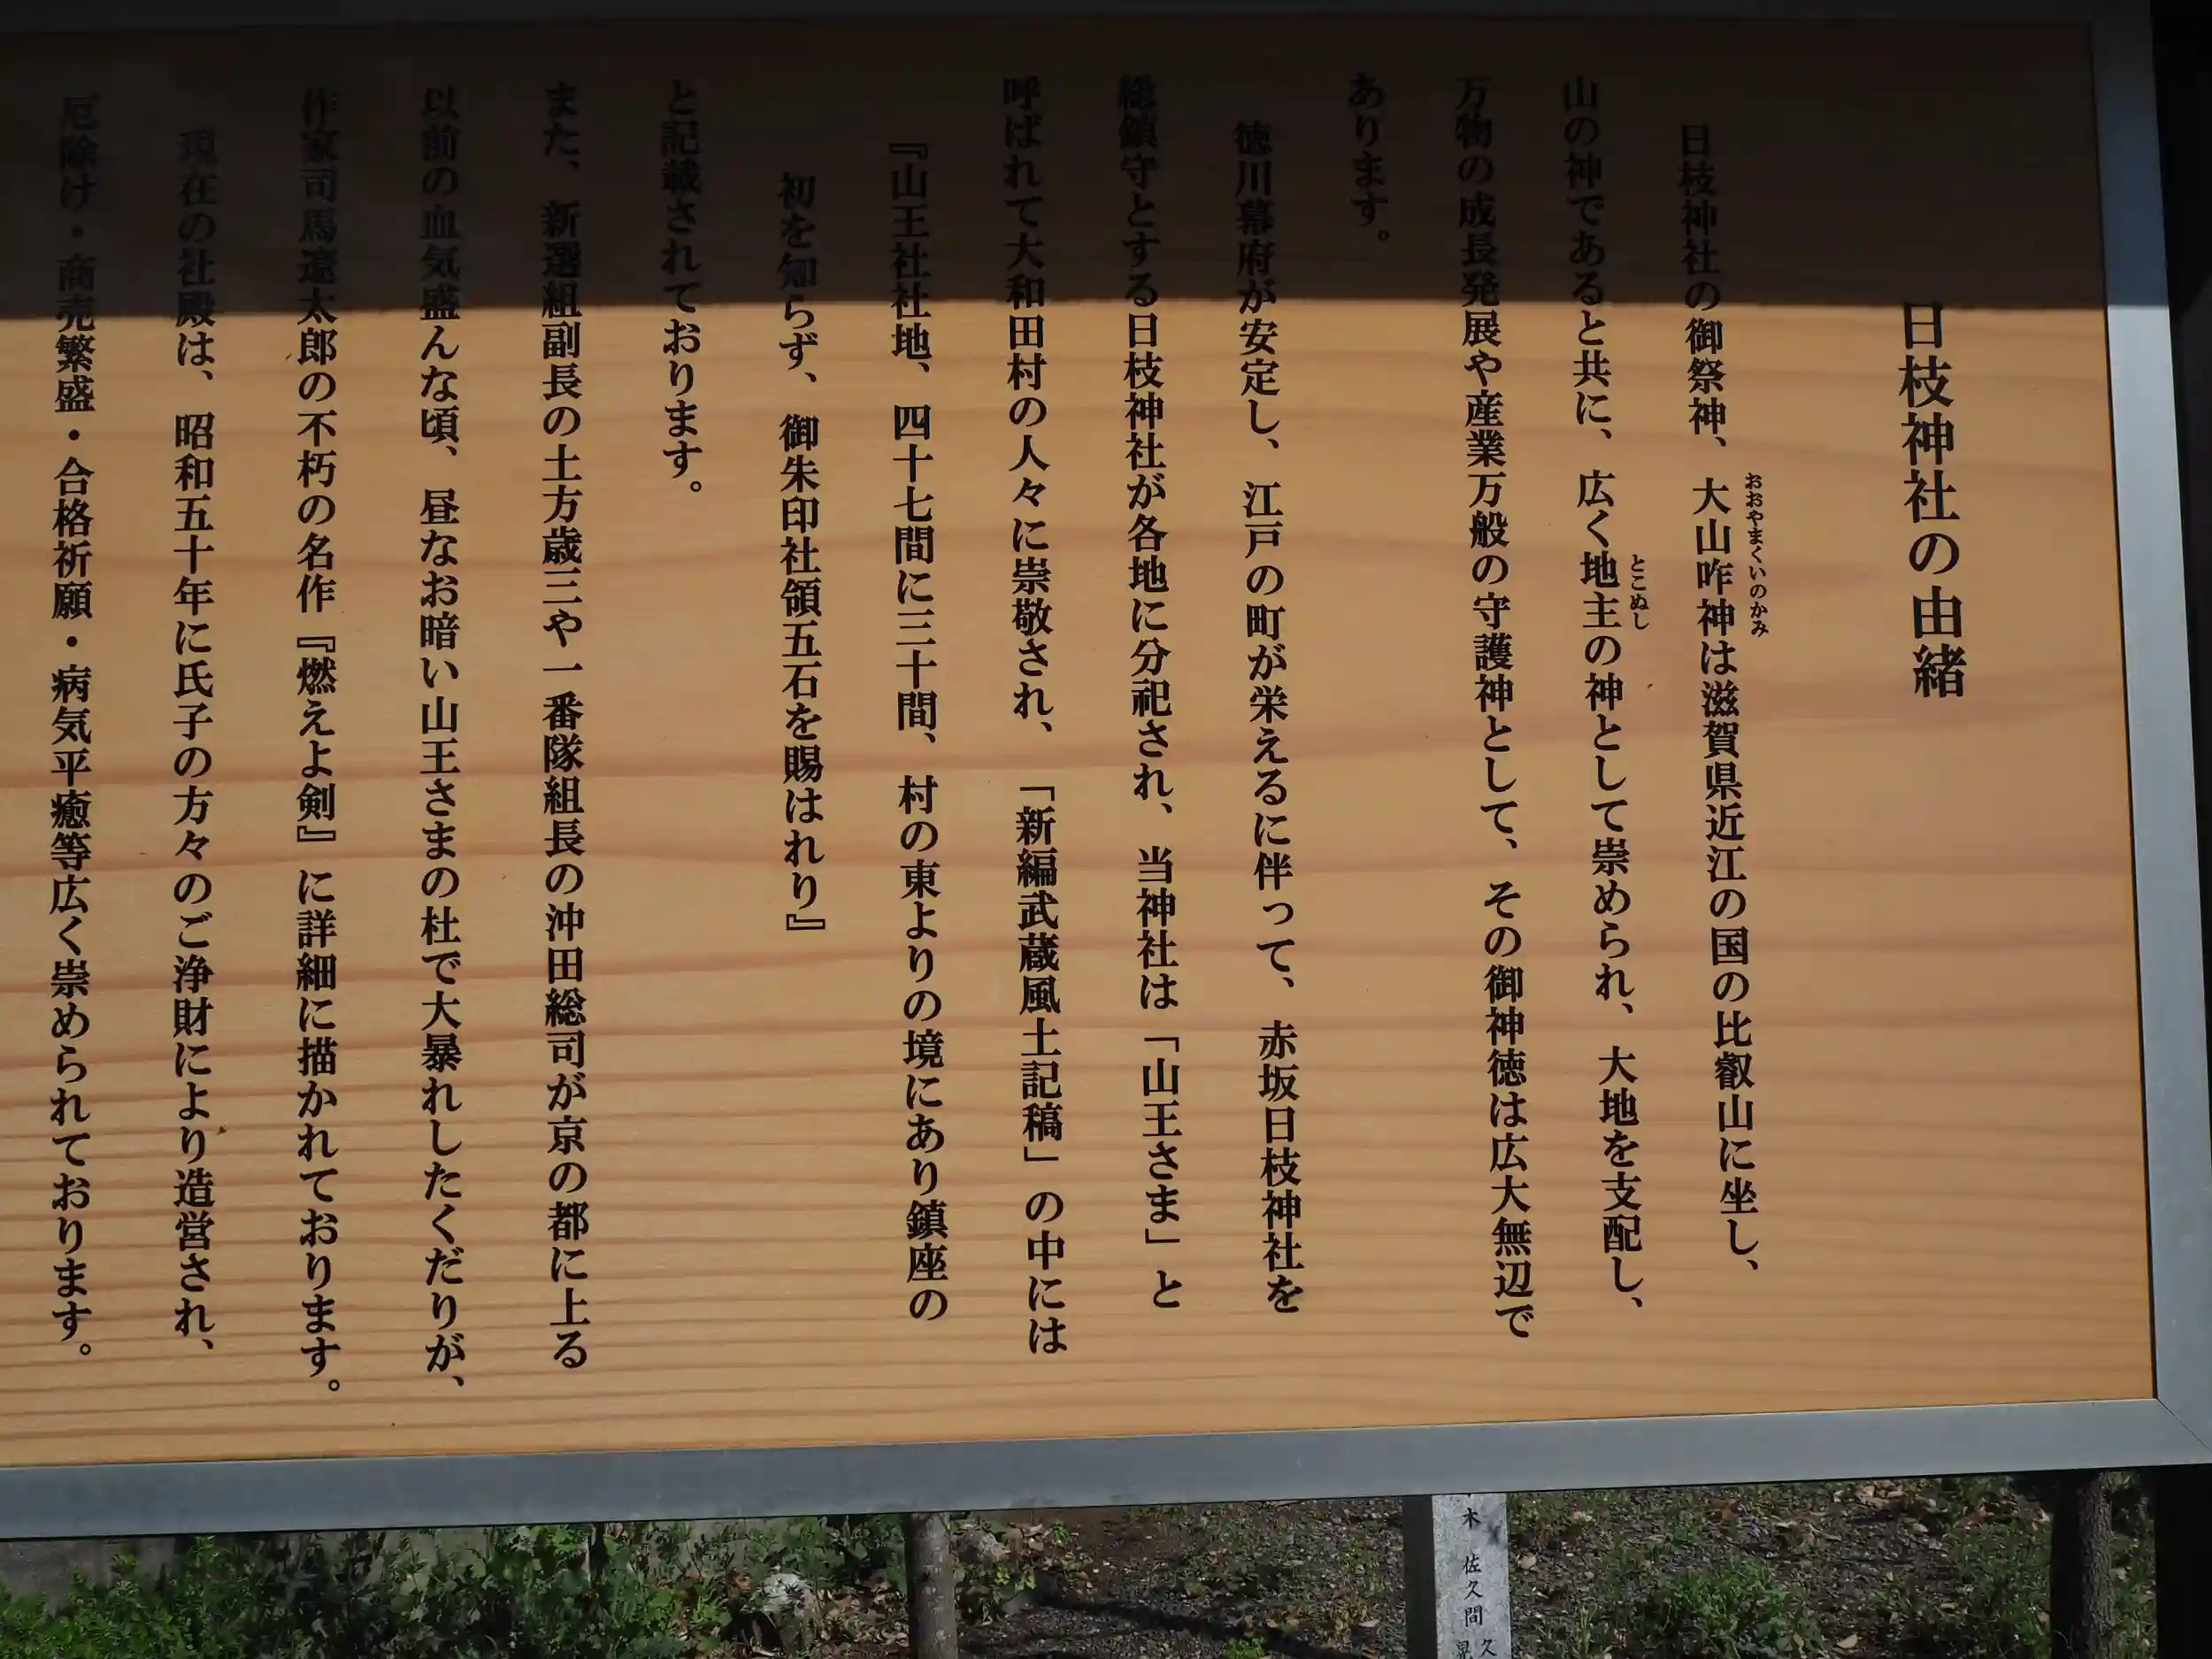 日枝神社の由緒
日枝神社の御祭神、大山咋神は滋賀県近江の国の比叡山に坐し、
おおやまくいのかみ
山の神であると共に、広く地主の神として崇められ、大地を支配し、
とこぬし
万物の成長発展や産業万般の守護神として、その御神徳は広大無辺で
あります。
徳川幕府が安定し、江戸の町が栄えるに伴って、赤坂日枝神社を
総鎮守とする日枝神社が各地に分祀され、当神社は「山王さま」と
呼ばれて大和田村の人々に崇敬され、「新編武蔵風土記稿」の中には
『山王社社地、四十七間に三十間、村の東よりの境にあり鎮座の
初を知らず、御朱印社領五石を賜はれり』
と記載されております。
また、新選組副長の土方歳三や一番隊組長の沖田総司が京の都に上る
以前の血気盛んな頃、昼なお暗い山王さまの杜で大暴れしたくだりが、
作家司馬遼太郎の不朽の名作『燃えよ剣』に詳細に描かれております。
現在の社殿は、昭和五十年に氏子の方々のご浄財により造営され、
厄除け・商売繁盛・合格祈願・病気平癒等広く崇められております。
木 佐久間
久